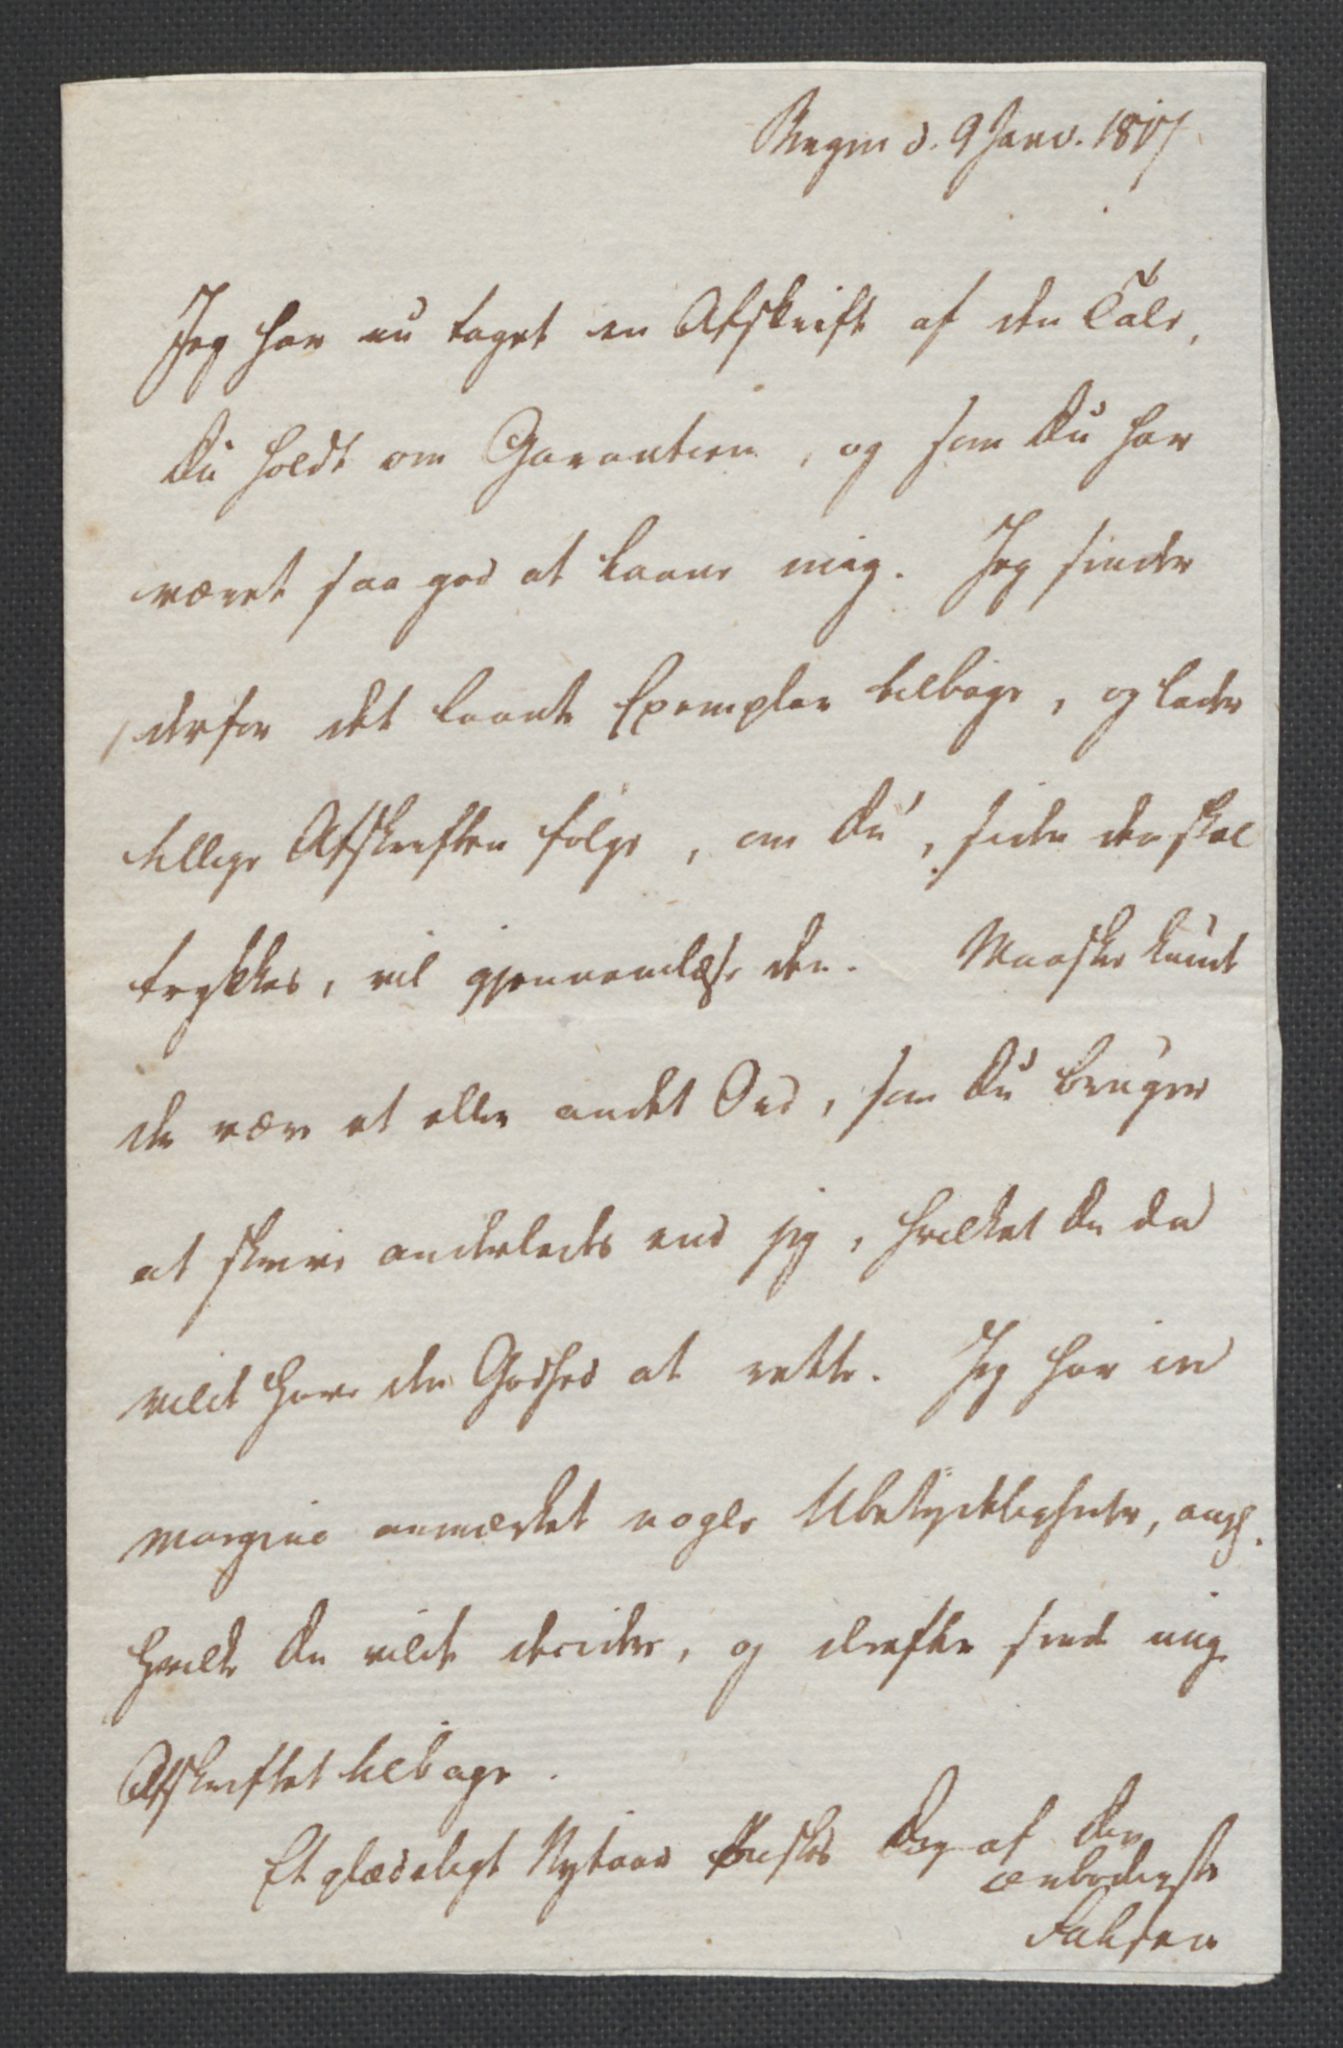 Bergen d. 9 Janv. 1817
Jeg har nu taget en Afskrift af den Tale,
Du holdt om Garantien, og som Du har
været saa god at laane mig. Jeg sender
derfor det laante Exemplar tilbage, og lader
tillige Afskriften følge, om Du, siden den skal
trykkes, vil gjennemlæse den. Maaskee kunde
der være et eller andet Ord, som Du bruger
at skrive anderledes end jeg, hvilket Du da
vilde have den Godhed at rette. Jeg har in
margine anmærket nogle Ubetydeligheder, angl.
hvilke Du vilde decidere, og derefter sende mig
Afskriftet tilbage.
Et glædeligt Nytaar ønskes Dig af Din
ærbødigste
Falsen